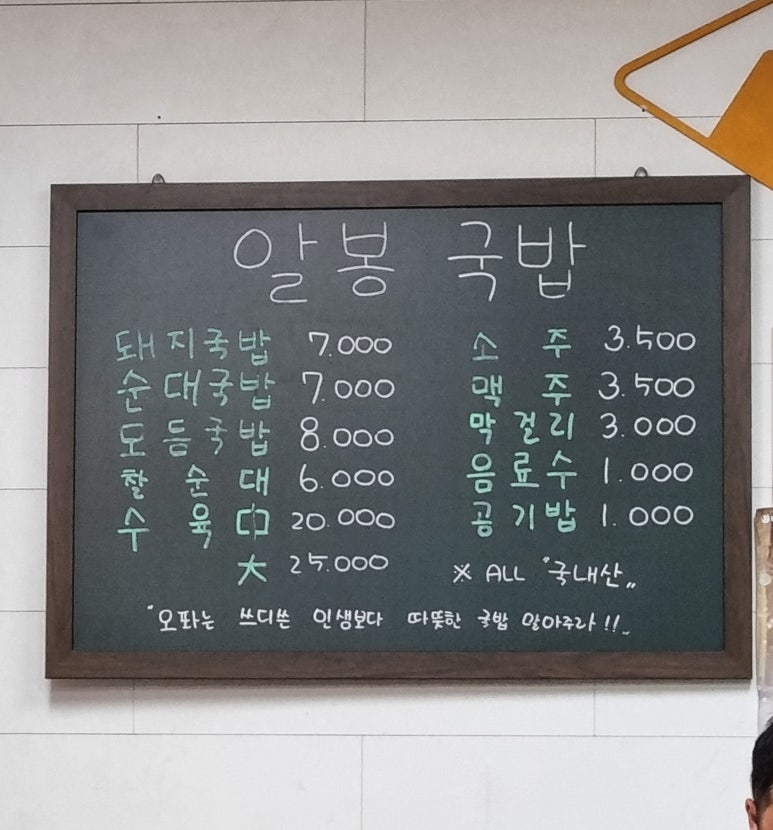 알봉 국밥
돼지국밥 7.000
순대국밥 7.000
모듬국밥 8.000
찰순대 6.000
수육 中 20.000
大 25.000
소주 3.500
맥주 3.500
막걸리 3.000
음료수 1.000
공기밥 1.000
※ ALL "국내산"
"오파는 쓰디쓴 인생보다 따뜻한 국밥 말아주라!!"